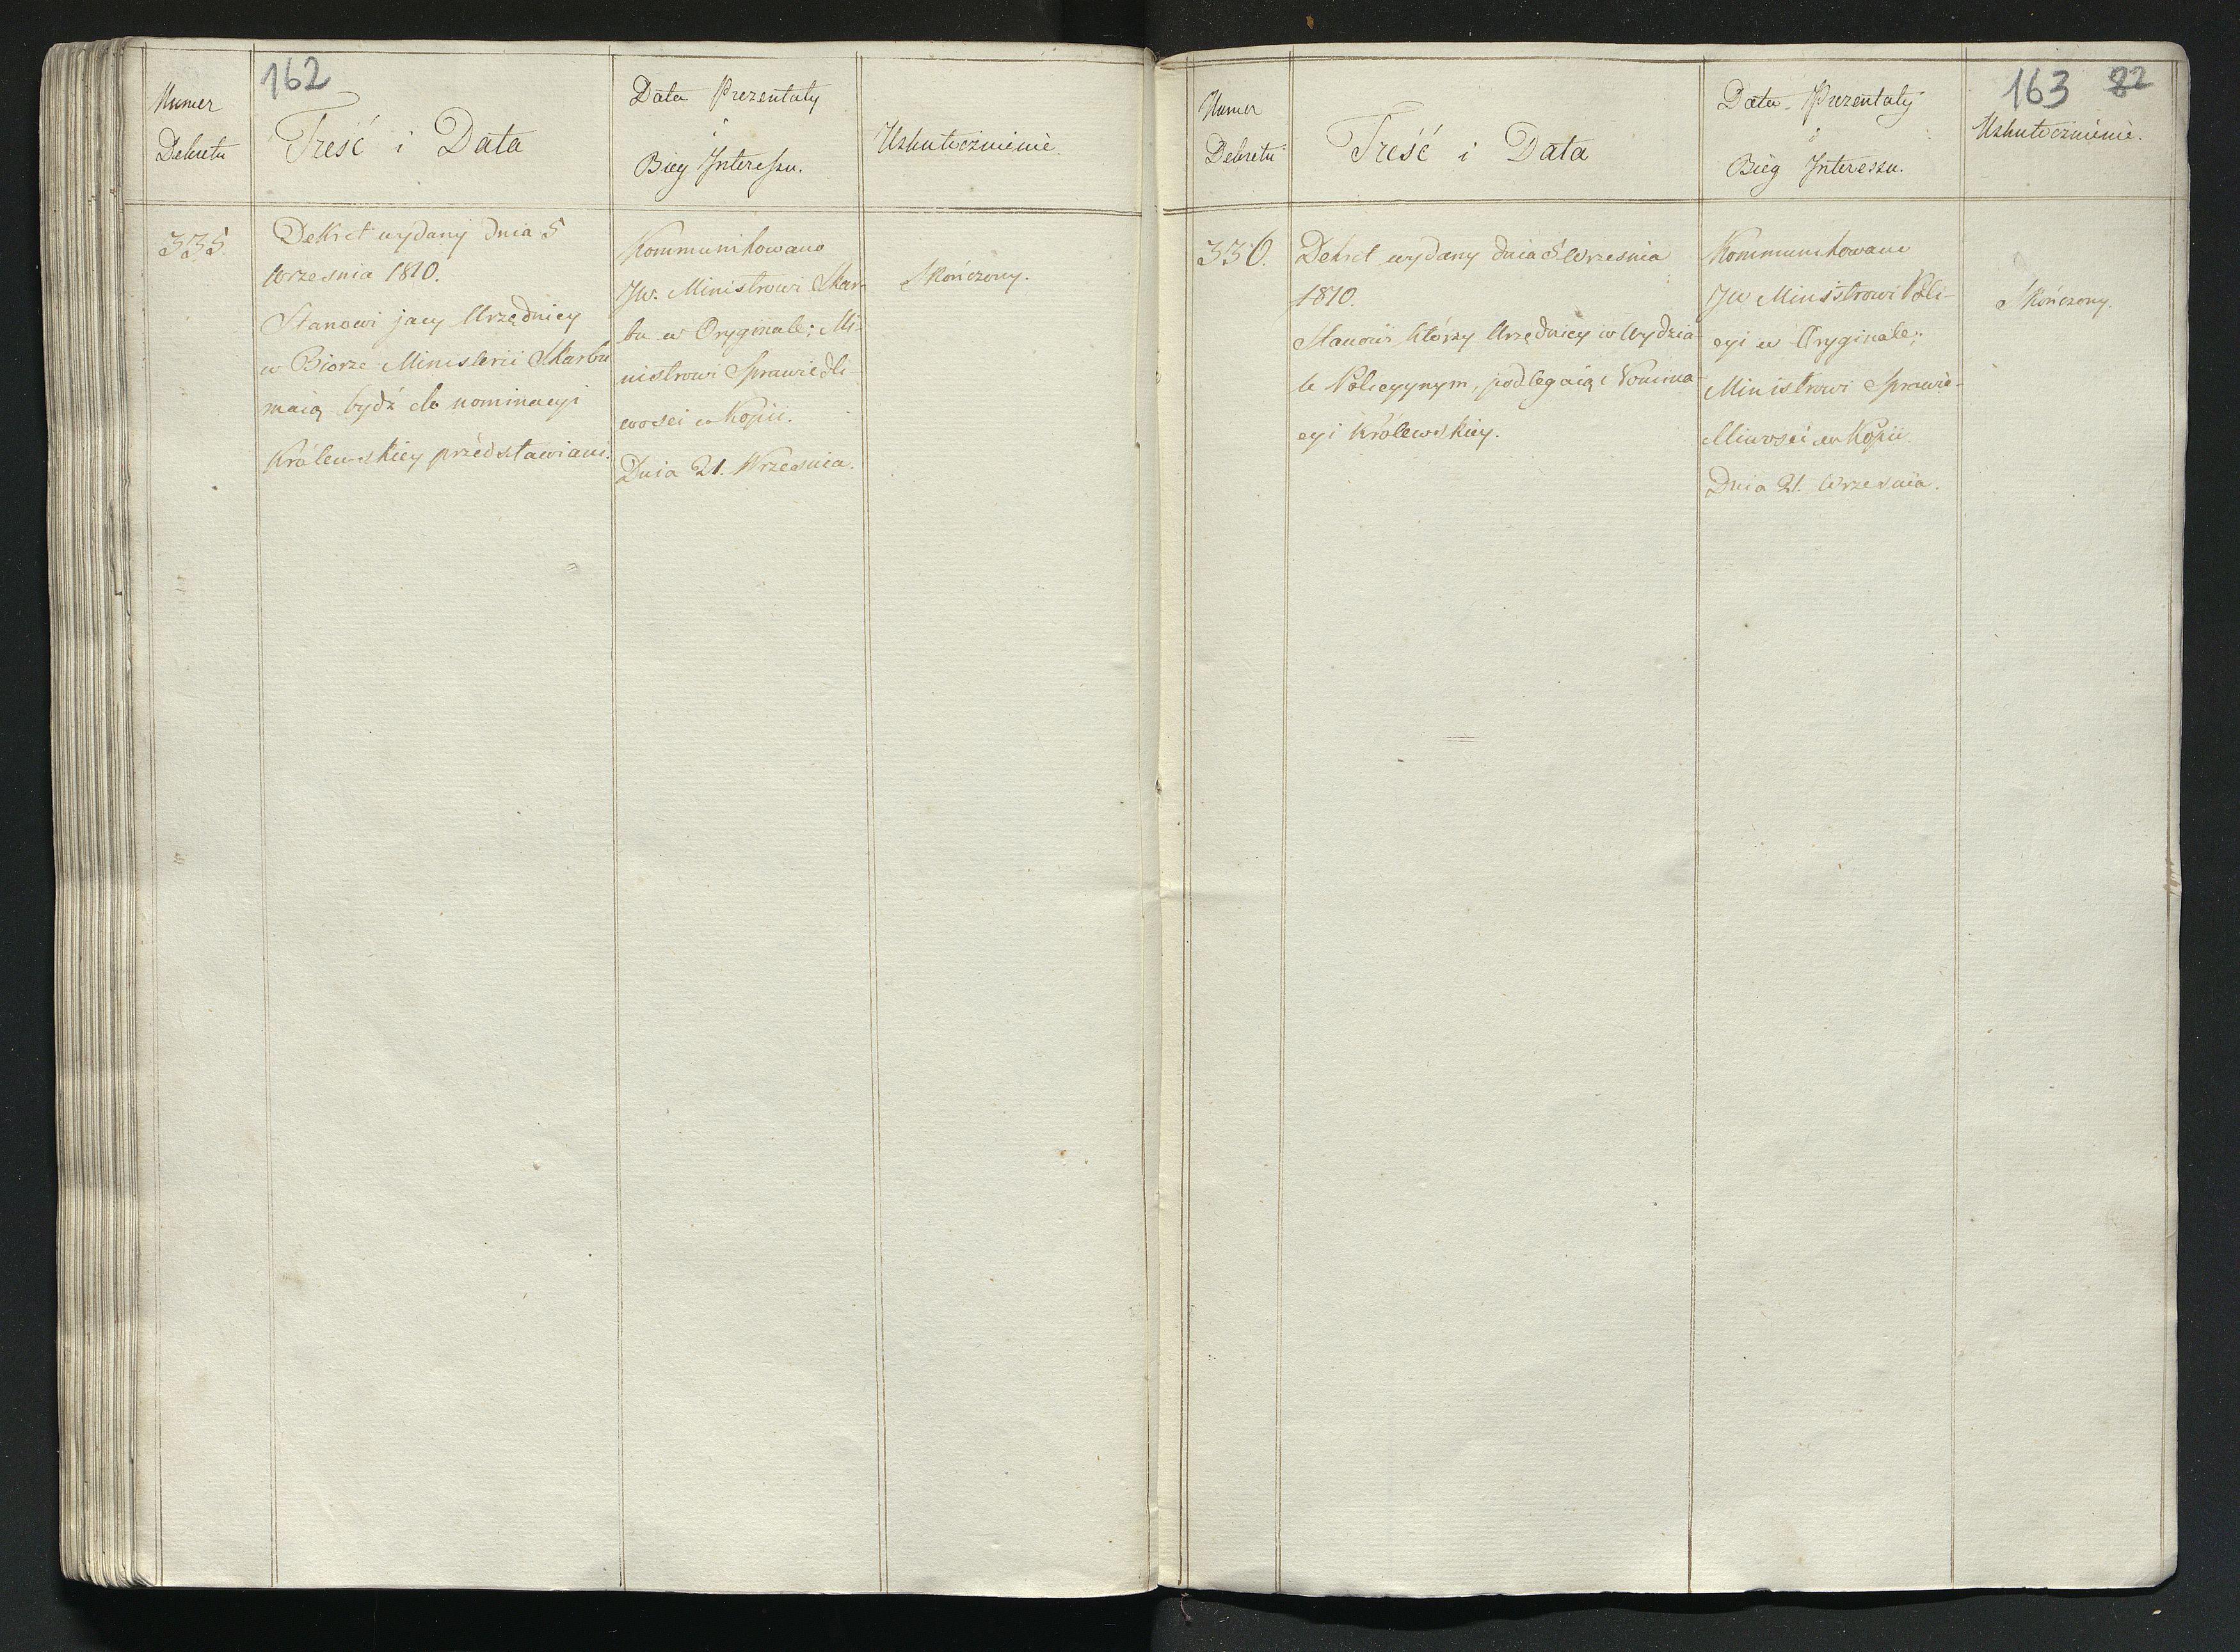 162
Numer
Dekretu
Treść i Data
Data Prezentaty
i
Bieg Interessu.
Uskutecznienie.
335.
Dekret wydany dnia 5
Września 1810.
Stanowi jacy Urzędnicy
w Biorze Ministerii Skarbu
maią bydź do nominacyi
Królewskiey przedstawiani.
Kommunikowano
JW. Ministrowi Skar-
bu w Oryginale; Mi-
nistrowi Sprawiedli-
wosci w Kopii.
Dnia 21. Wrzesnia.
Skończony.
163 82
Numer
Dekretu
Treść i Data
Data Prezentaty
i
Bieg Interessu.
Uskutecznienie.
336.
Dekret wydany dnia 5 Wrzesnia
1810.
Stanowi którzy Urzędnicy w Wydzia-
le Policyynym, podlegaią Nomina-
cyi Królewskiey.
Kommunikowano
JW Ministrowi Poli-
cyi w Oryginale;
Ministrowi Sprawie-
dliwosci w Kopii.
Dnia 21. Wrzesnia.
Skończony.